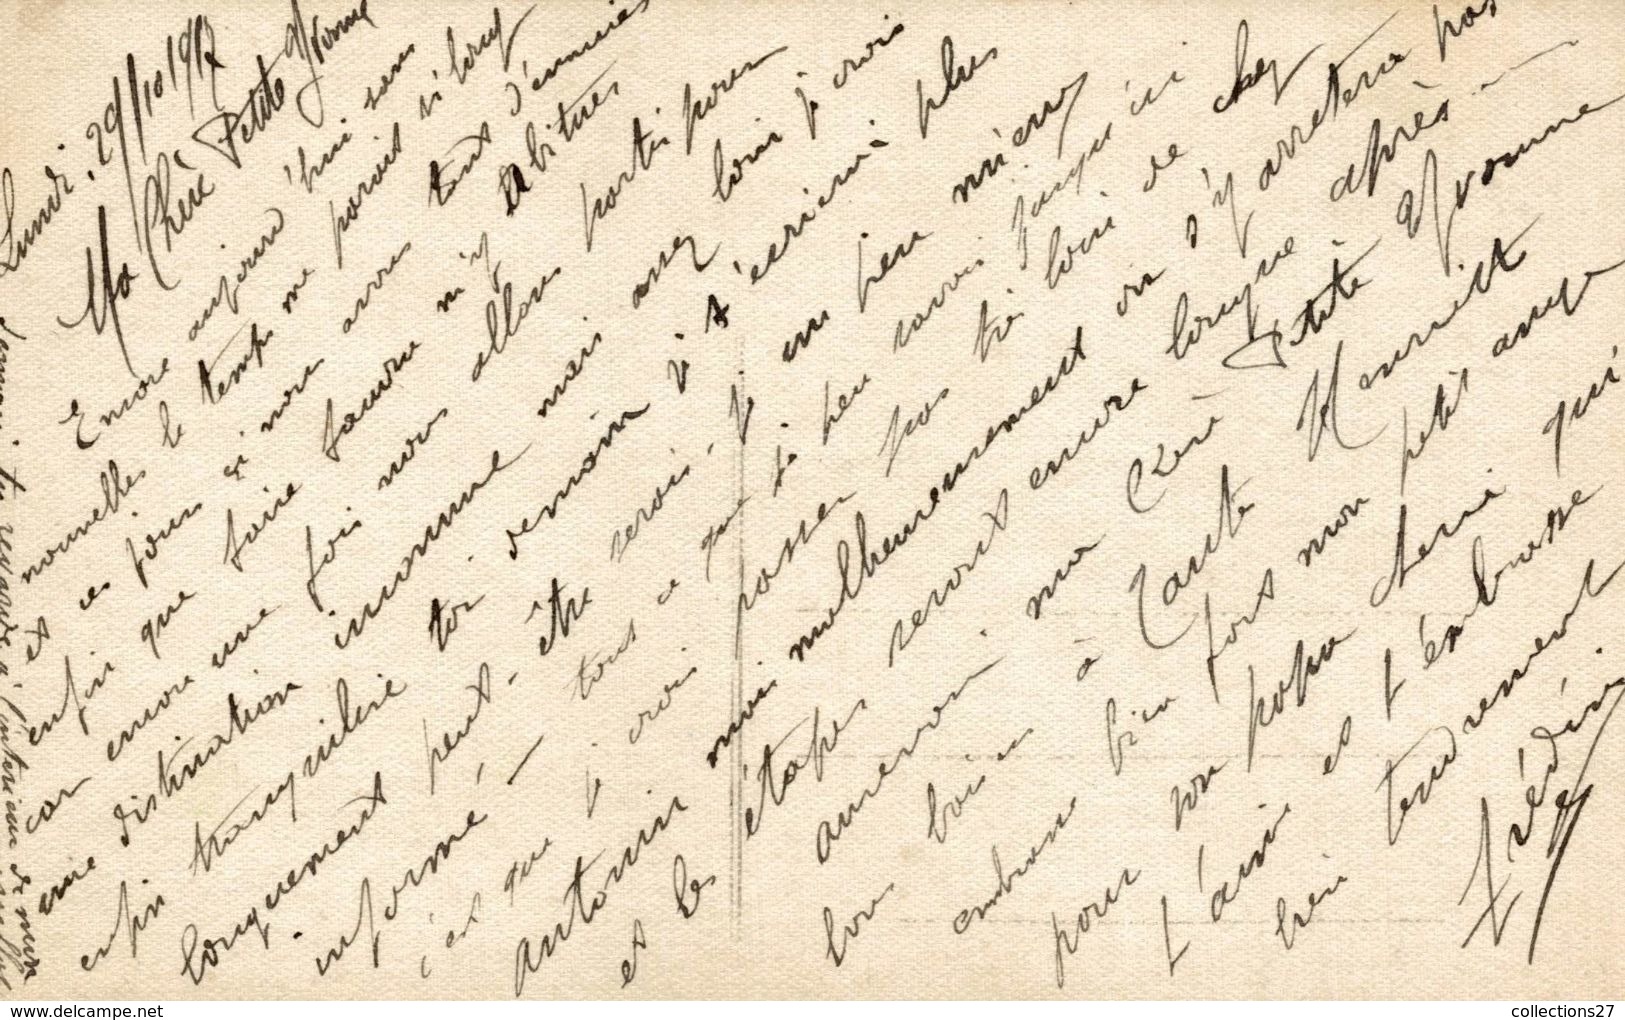 Lundi, 29/10 1917
Ma Chère Petite Yvonne
Encore aujourd'hui sans
nouvelles le temps me parait si long
et ces jours ci nous avons tant d'ennuies
enfin que faire faudra m'y habituer
car encore une fois nous allons partir pour
une destination inconnue mais assez loin je crois
enfin tranquilise toi demain je t'écrirai plus
longuement peut-être serais-je un peu mieux
informé — tous ce que je peu savoir jusqu'ici
c'est que je crois passer pas très loin de chez
Antonin mais malheureusement on s'y arretera pas
et les étapes seront encore longue après —
aurevoir ma Chère Petite Yvonne
bon baisers à Tante Henriette
embrasse bien fort mon petit ange
pour son papa cheri qui
t'aime et t'embrasse
bien tendrement
Frédéri
tu regarde à l'intérieur de mon
collections27